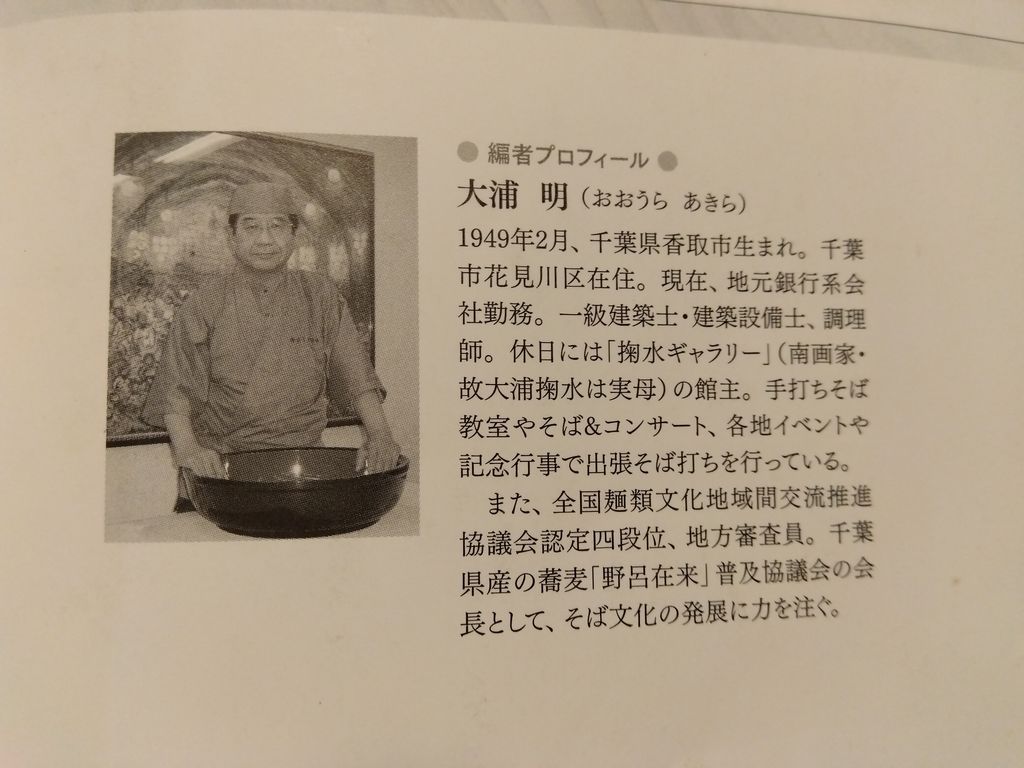 ● 編者プロフィール ●
大浦 明（おおうら あきら）
1949年2月、千葉県香取市生まれ。千葉
市花見川区在住。現在、地元銀行系会
社勤務。一級建築士・建築設備士、調理
師。休日には「掬水ギャラリー」（南画家・
故大浦掬水は実母）の館主。手打ちそば
教室やそば&コンサート、各地イベントや
記念行事で出張そば打ちを行っている。
また、全国麺類文化地域間交流推進
協議会認定四段位、地方審査員。千葉
県産の蕎麦「野呂在来」普及協議会の会
長として、そば文化の発展に力を注ぐ。